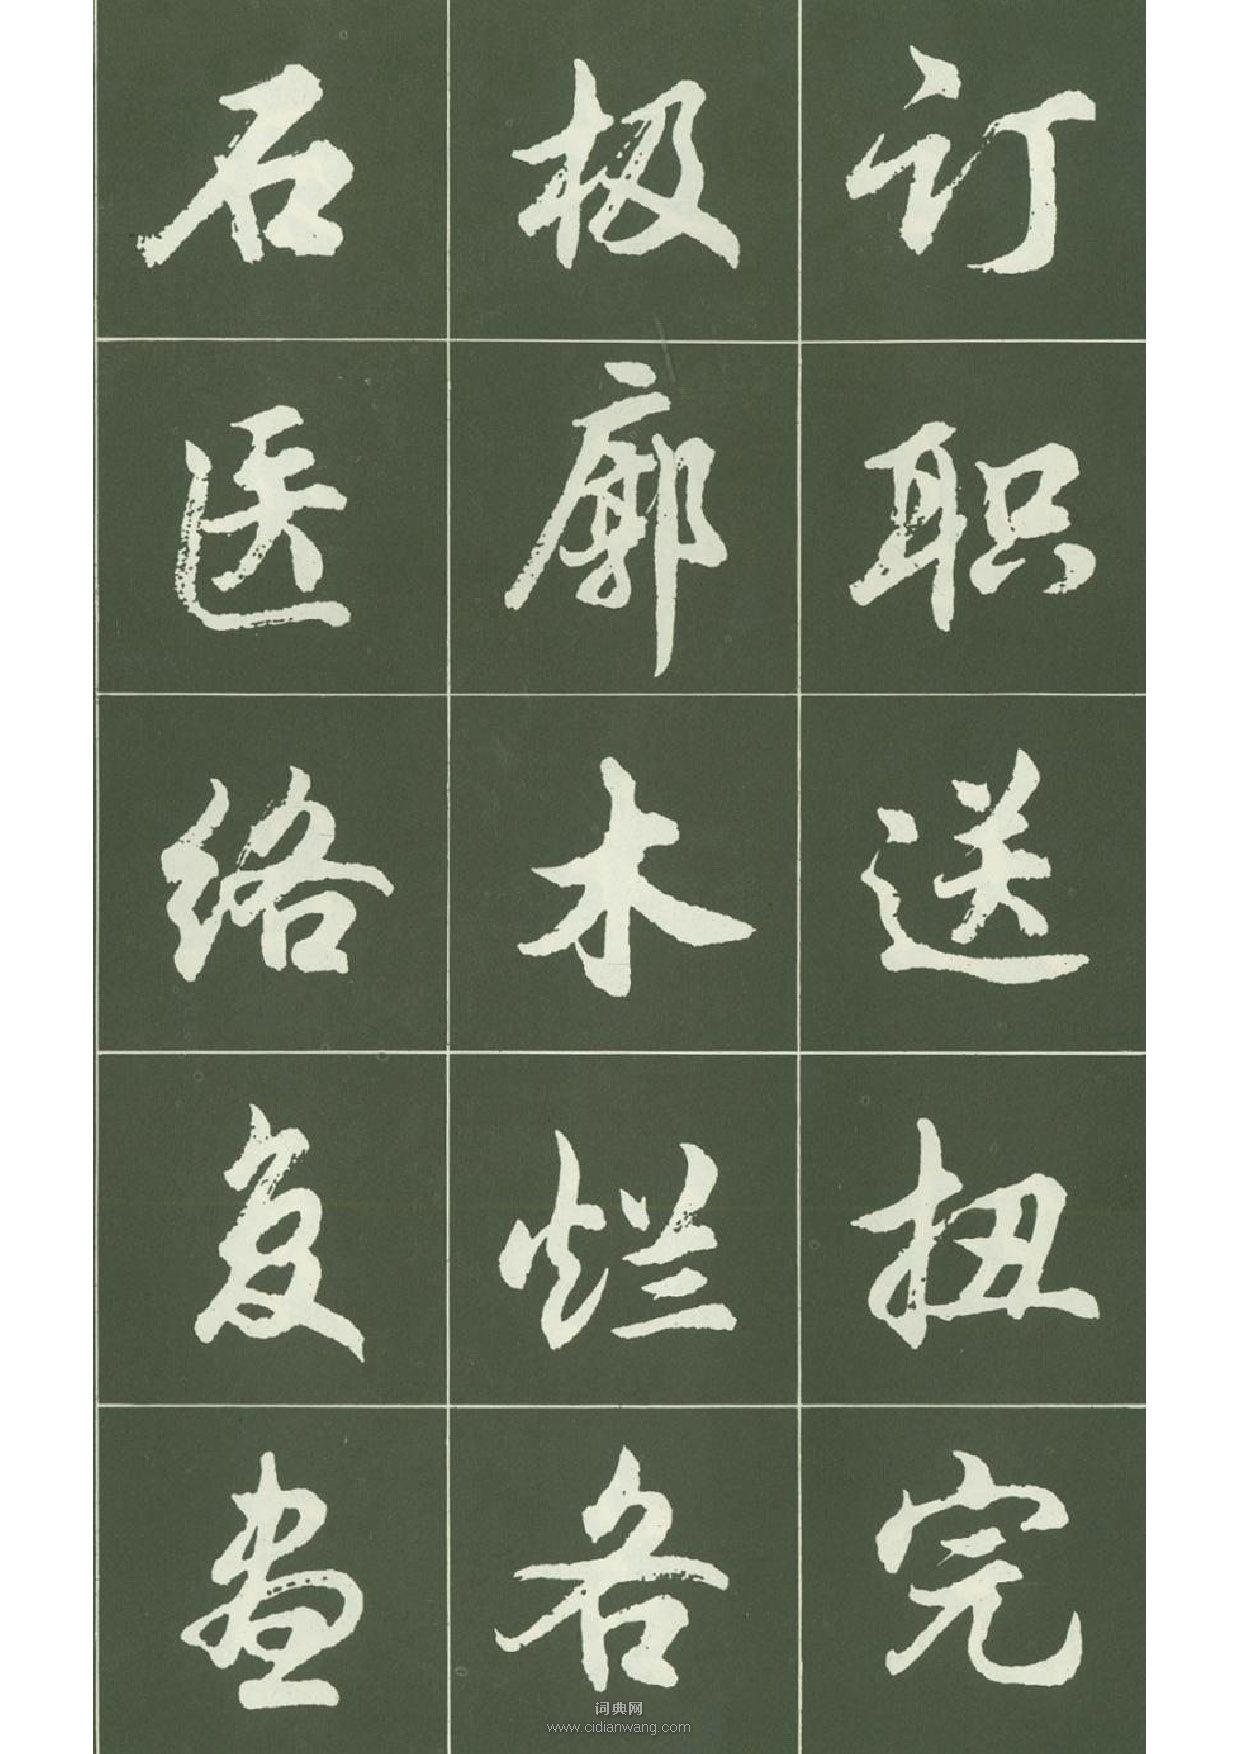 订职送扭完
极廓木烂各
石医络复畫
词典网
www.cidianwang.com